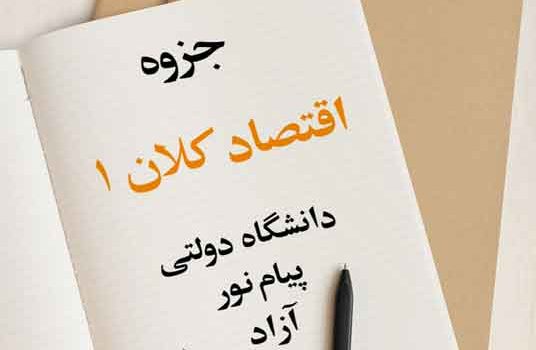 جزوه
اقتصاد کلان ۱
دانشگاه دولتی
پیام نور
آزاد